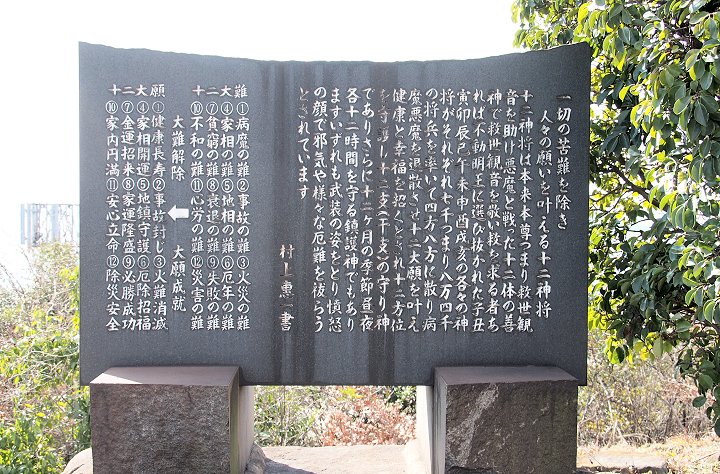 一切の苦難を除き
人々の願いを叶える十二神将
十二神将は本来本尊つまり救世観
音を助け悪魔と戦った十二体の善
神で救世観音を敬い救を求る者あ
れば不動明王に選び抜かれた子丑
寅卯辰巳午未申酉戌亥の各々の神
将がそれぞれ七千つまり八万四千
の将兵を率いて四方八方に散り病
魔悪魔を退散させ十二大願を叶え
健康と幸福を招くとされ十二方位
を守護し十二支(干支)の守り神
でありさらに十二ヶ月の季節昼夜
各十二時間を守る鎮護神でもあり
ますいずれも武装の姿をとり憤怒
の顔で邪気や様々な厄難を祓らう
とされています
村上惠一書
難①病魔の難②事故の難③火災の難
大④家相の難⑤地相の難⑥厄年の難
二⑦貧窮の難⑧衰退の難⑨失敗の難
十⑩不和の難⑪心労の難⑫災害の難
大難解除 ← 大願成就
願①健康長寿②事故封じ③火難消滅
大④家相開運⑤地鎮守護⑥厄除招福
二⑦金運招来⑧家運隆盛⑨必勝成功
十⑩家内円満⑪安心立命⑫除災安全